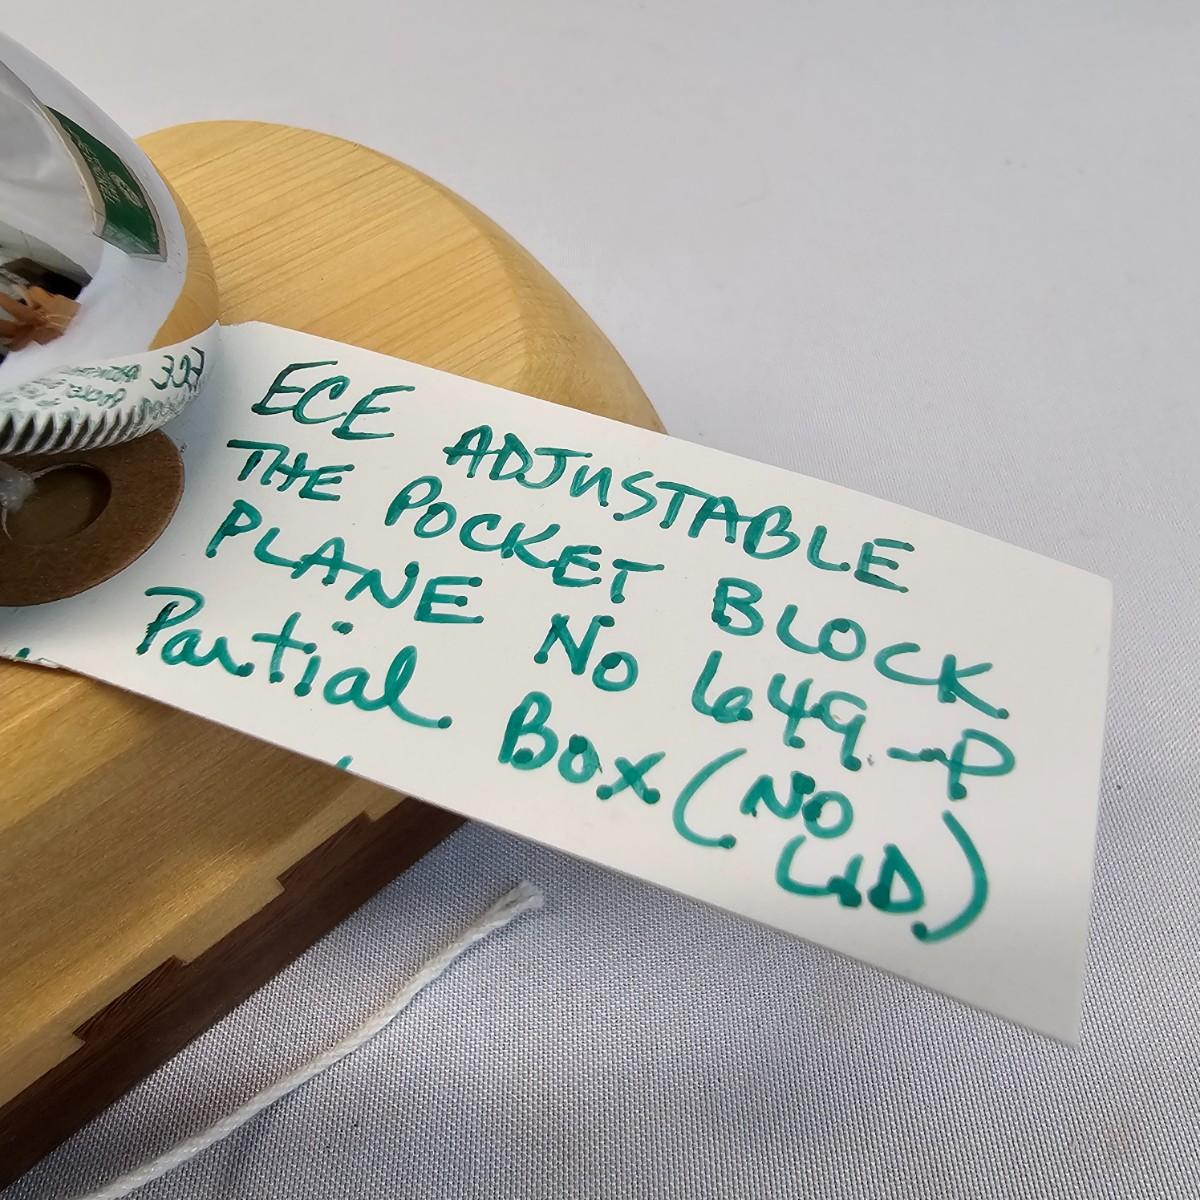 ECE ADJUSTABLE
THE POCKET BLOCK
PLANE NO 649-P
Partial Box (NO
LID)
ECE